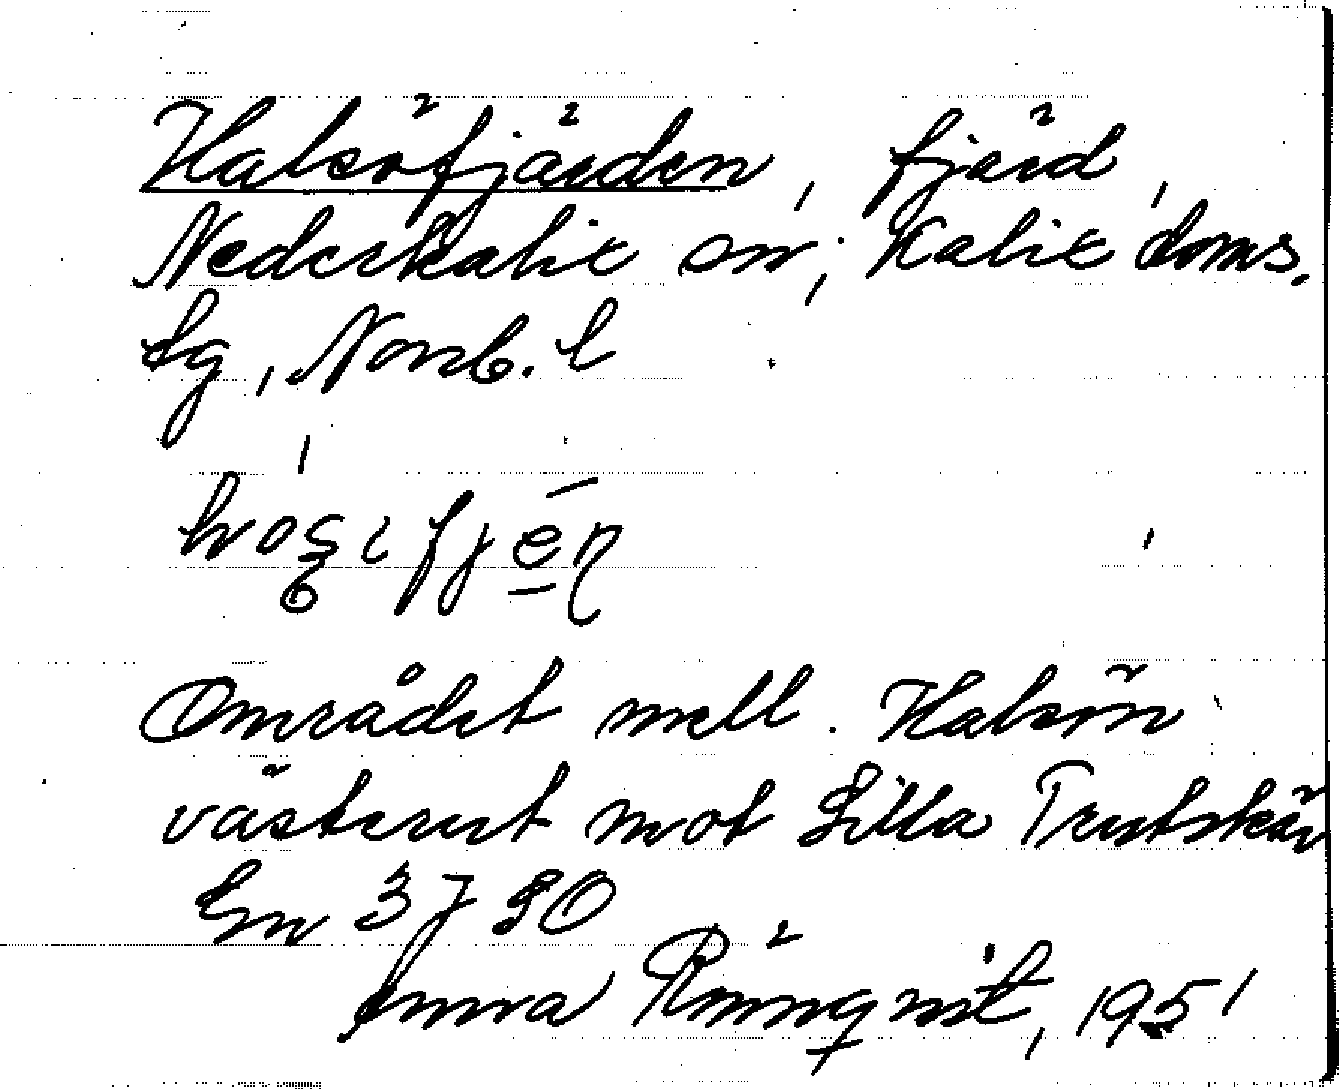 Halsöfjärden, fjärd,
Nederkalix sn, Kalix doms.
sg, Norrb. l
Området mell. Halsön
västerut mot Lilla Trutskär
En 3 j SO
Anna Rönnqvist, 1951